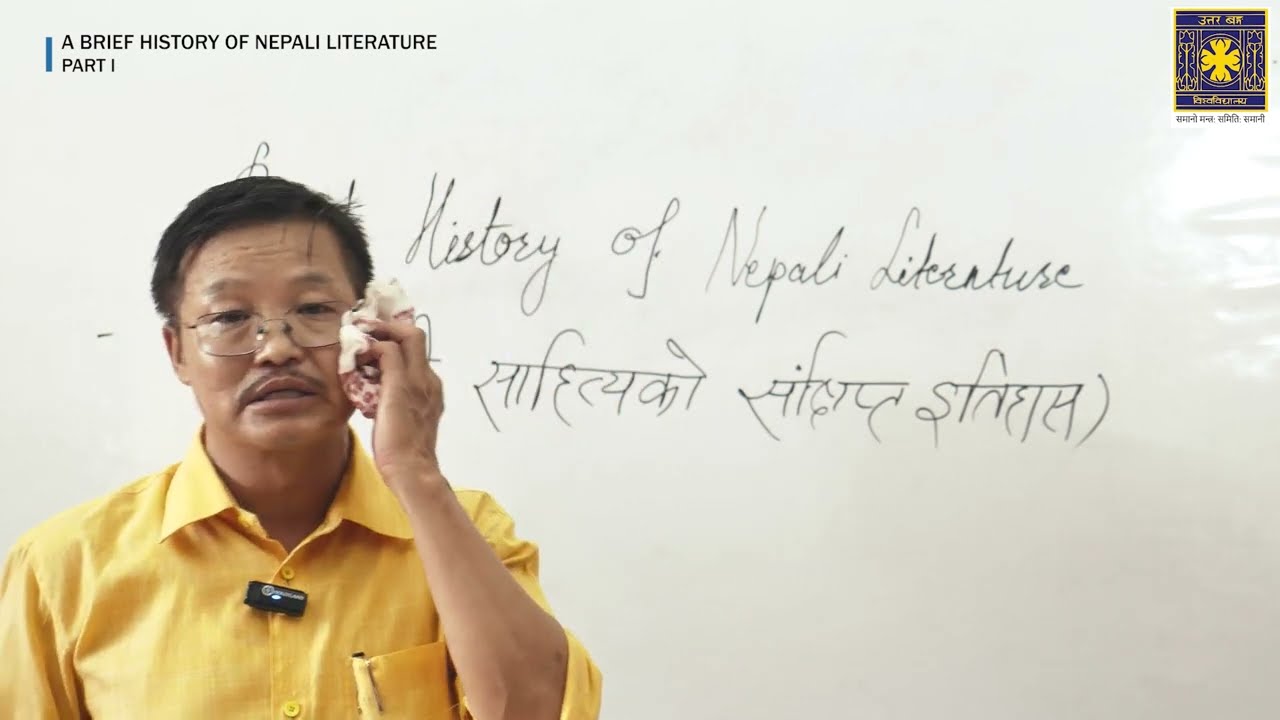 A BRIEF HISTORY OF NEPALI LITERATURE
PART I
उत्तर बङ्ग
विश्वविद्यालय
समानो मन्त्र: समिति: समानी
History of Nepali Literature
साहित्यको संक्षिप्त इतिहास)